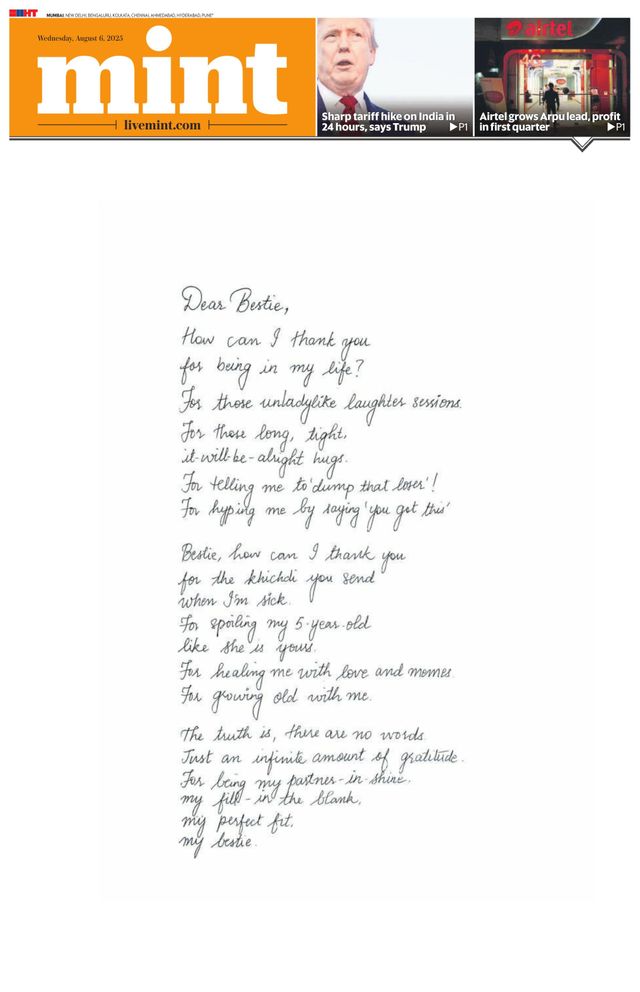 HT
MUMBAI, NEW DELHI, BENGALURU, KOLKATA, CHENNAI, AHMEDABAD, HYDERABAD, PUNE*
Wednesday, August 6, 2025
mint
livemint.com
Sharp tariff hike on India in
24 hours, says Trump ▶P1
airtel
4G
Airtel grows Arpu lead, profit
in first quarter ▶P1
Dear Bestie,
How can I thank you
for being in my life?
For those unladylike laughter sessions.
For those long, tight,
it-will-be-alright hugs.
For telling me to 'dump that loser'!
For hyping me by saying 'you got this'
Bestie, how can I thank you
for the khichdi you send
when I'm sick.
For spoiling my 5-year-old
like she is yours.
For healing me with love and memes.
For growing old with me.
The truth is, there are no words.
Just an infinite amount of gratitude.
For being my partner-in-shine,
my fill-in the blank,
my perfect fit,
my bestie.